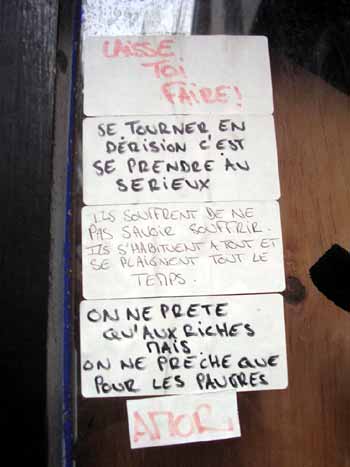 LAISSE
TOI
FAIRE!
SE TOURNER EN
DÉRISION C'EST
SE PRENDRE AU
SERIEUX
ILS SOUFFRENT DE NE
PAS SAVOIR SOUFFRIR.
ILS S'HABITUENT A TOUT ET
SE PLAIGNENT TOUT LE
TEMPS.
ON NE PRETE
QU'AUX RICHES
MAIS
ON NE PRECHE QUE
POUR LES PAUVRES
AMOR.